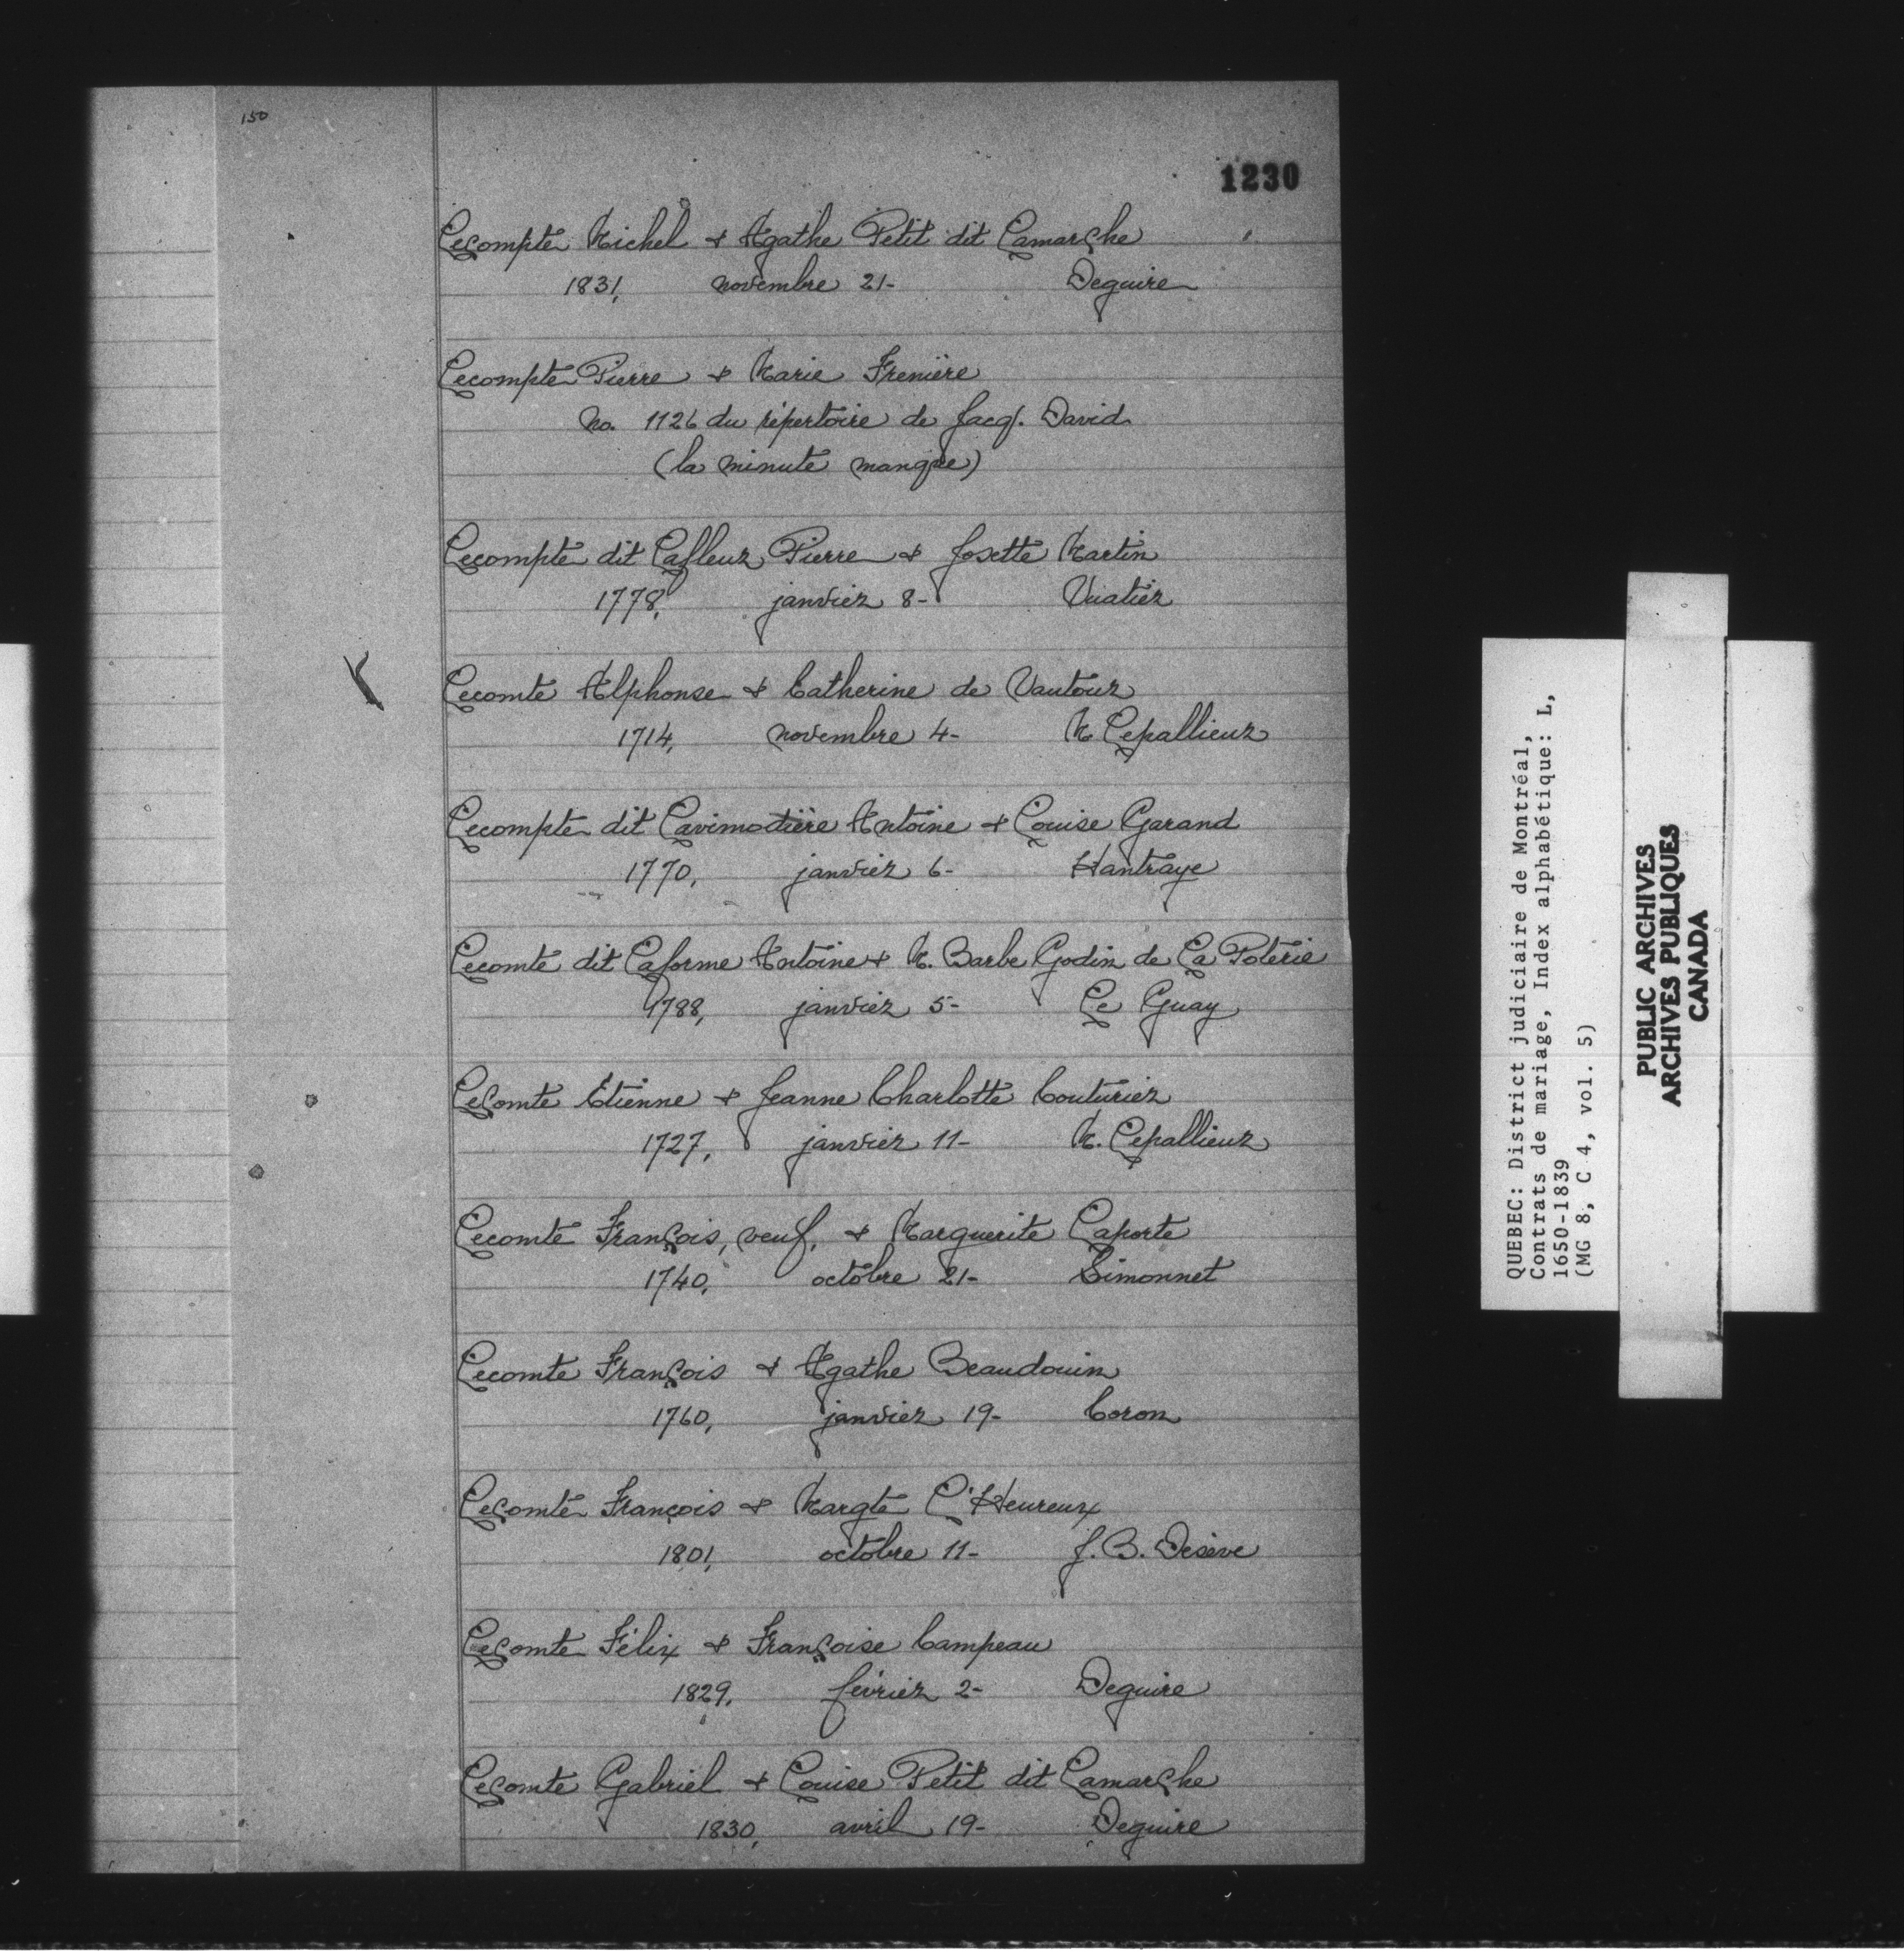 150
1230
Lecompte Michel & Agathe Petit dit Lamarche
1831, novembre 21- Deguire
Lecompte Pierre & Marie Frenière
No. 1126 du répertoire de Jacq. David
(la minute manque)
Lecompte dit Lafleur Pierre & Josette Martin
1778, janvier 8- Vuatier
Lecomte Alphonse & Catherine de Vautour
1714, novembre 4- M. Lepallieur
Lecompte dit Lavimodière Antoine & Louise Garand
1770, janvier 6- Hantraye
Lecomte dit Laforme Antoine & M. Barbe Godin de La Poterie
1788, janvier 5- Le Guay
Lecomte Étienne & Jeanne Charlotte Couturier
1727, janvier 11- M. Lepallieur
Lecomte François, veuf, & Marguerite Laporte
1740, octobre 21- Simonnet
Lecomte François & Agathe Beaudouin
1760, janvier 19- Coron
Lecomte François & Margte L'Heureux
1801, octobre 11- J. B. Desève
Lecomte Félix & Françoise Campeau
1829, février 2- Deguire
Lecomte Gabriel & Louise Petit dit Lamarche
1830, avril 19- Deguire
QUEBEC: District judiciaire de Montréal,
Contrats de mariage, Index alphabétique: L,
1650-1839
(MG 8, C 4, vol. 5)
PUBLIC ARCHIVES
ARCHIVES PUBLIQUES
CANADA